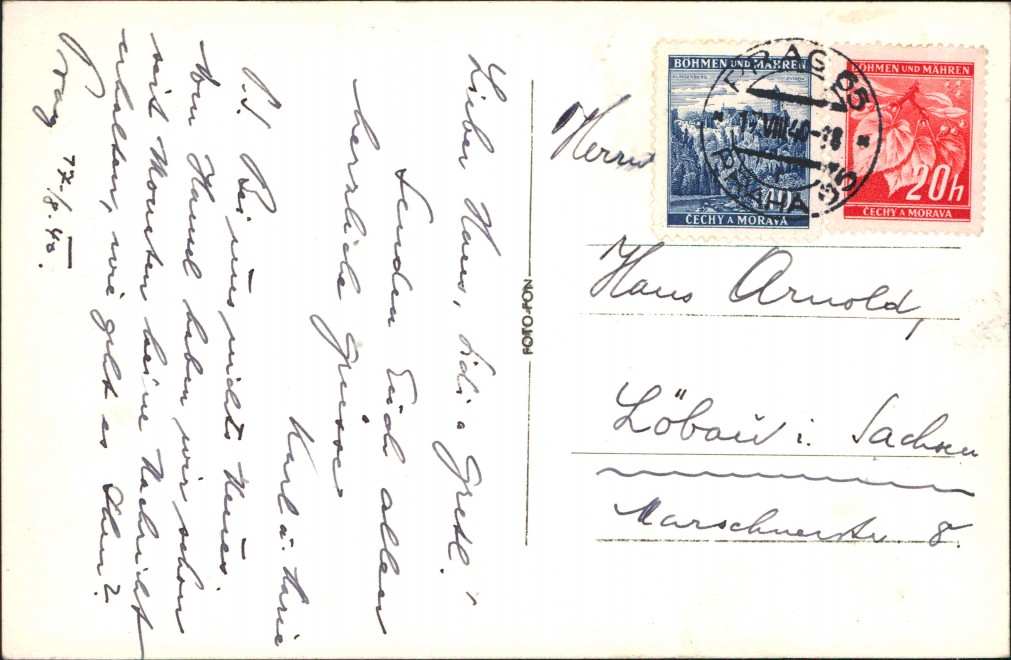 Lieber Hans, Lidi u Gretl!
Senden Euch allen
herzliche Grüsse
Karl u. Marie
P.S. Bei uns nichts Neues.
Von Hansel haben wir schon
seit Monaten keine Nachricht
erhalten, wie geht es Ihm?
Prag 17./8.40.
FOTO-FON
BÖHMEN UND MÄHREN
KLINGENBERG ZVÍKOV
ČECHY A MORAVA
BÖHMEN UND MÄHREN
20h
ČECHY A MORAVA
PRAG 55
VIII 40-18
PRAHA 55
Herrn
Hans Arnold,
Löbau i. Sachsen
Marschnerstr. 8.